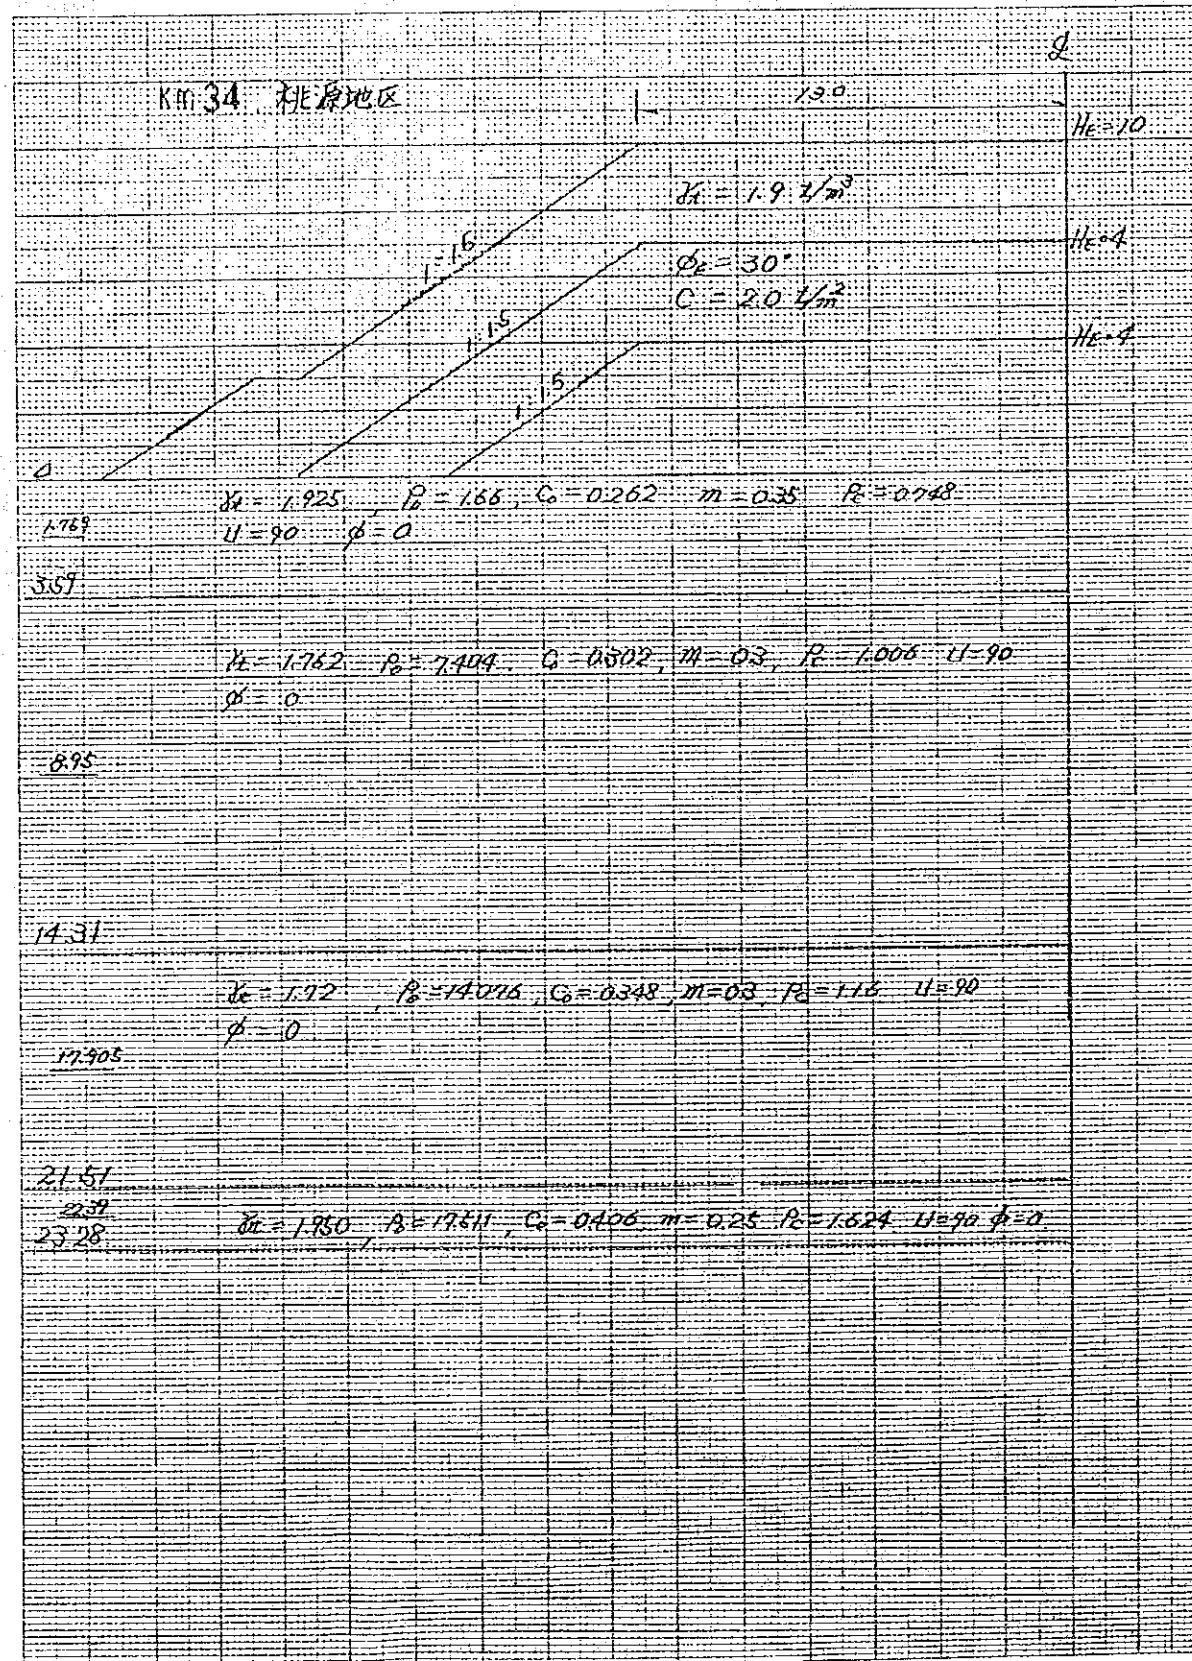 Km 34 桃原地区
℄
13.0
HE=10
γt = 1.9 t/m³
1:1.5
HE=4
φE = 30°
C = 2.0 t/m²
1:1.5
HE=4
1:1.5
0
γt = 1.925 , P0 = 1.66 , C0 = 0.262 m = 0.35 Pc = 0.748
1.769
U = 90 φ = 0
3.59
γt = 1.762 P0 = 7.404 . C0 = 0.302 , m = 0.3 , Pc = 1.006 U = 90
φ = 0
8.95
14.31
γt = 1.72 , P0 = 14.076 , C0 = 0.348 , m = 0.3 , Pc = 1.16 U = 90
φ = 0
17.905
21.51
22.39
γt = 1.750 , P0 = 17.511 , C0 = 0.406 m = 0.25 Pc = 1.624 U = 90 φ = 0
23.28